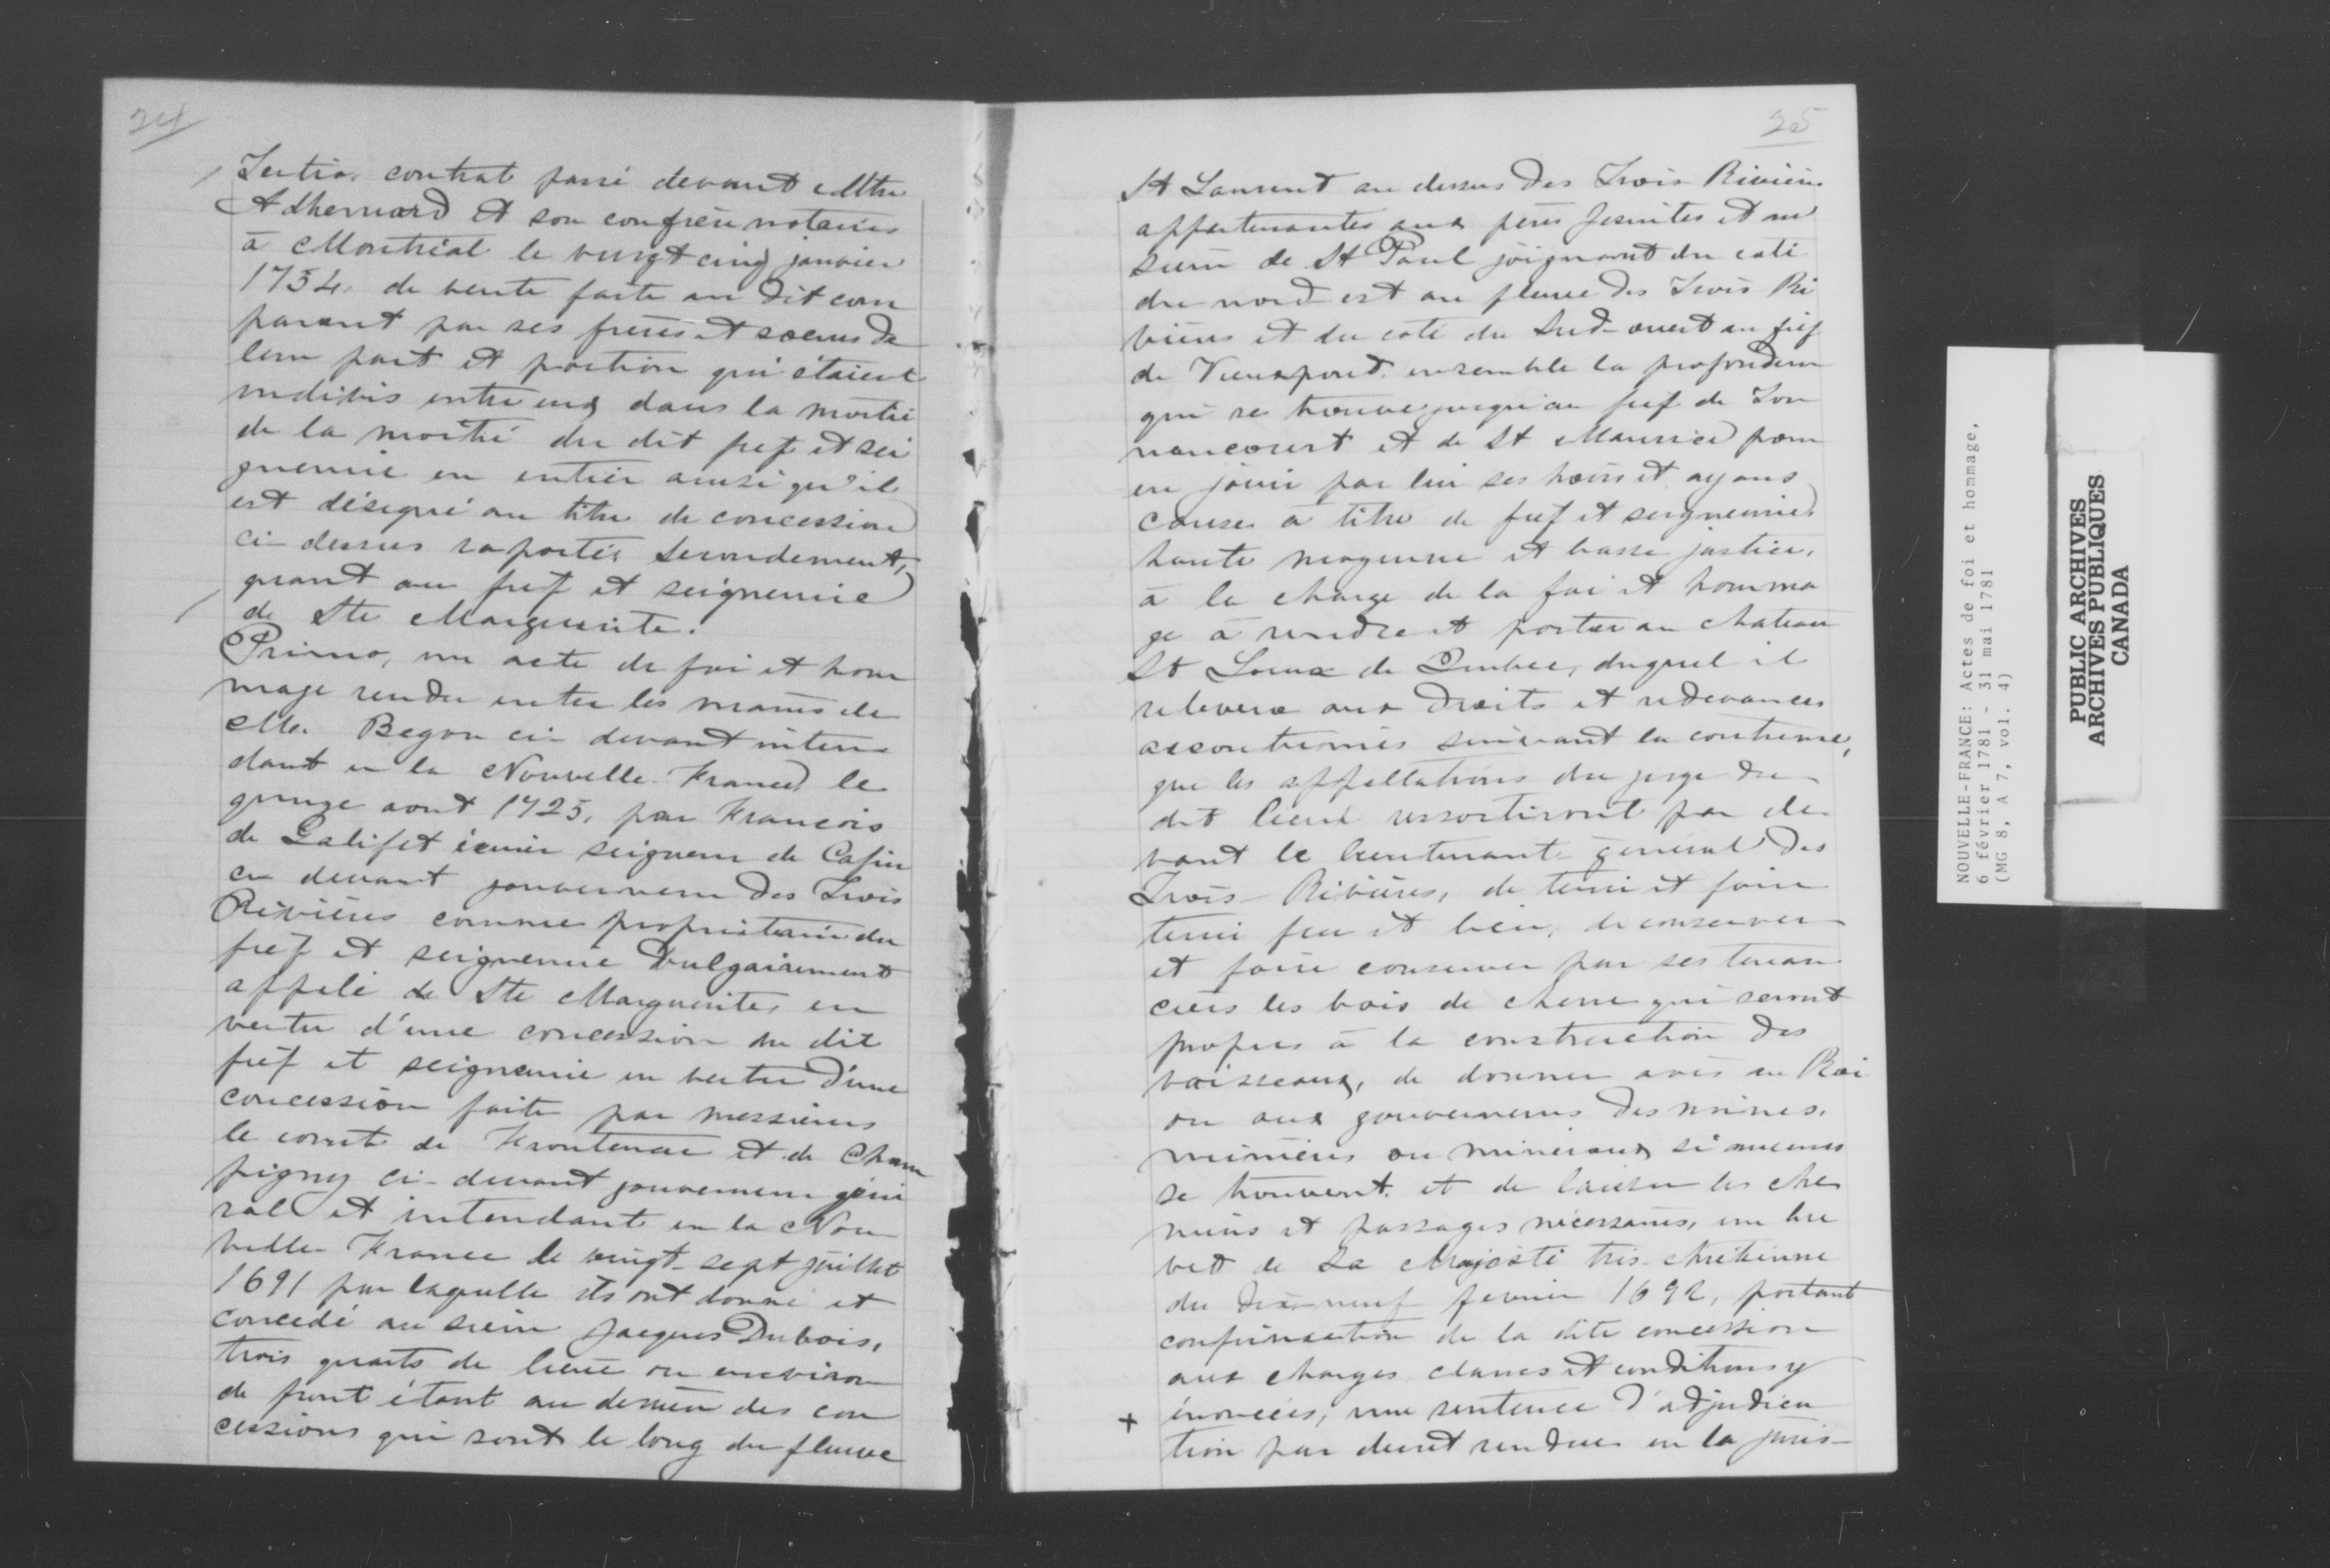 24
Tertio. contrat passé devant Mtre
Adhemard et son confrère notaires
à Montréal le vingt cinq janvier
1754. de vente faite au dit com
parant par ses frères et soeurs de
leur part et portion qui étaient
indivis entre eux dans la moitié
de la moitié du dit fief et sei
gneurie en entier ainsi qu'il
est désigné au titre de concession
ci-dessus raportée Secondement,
quant au fief et seigneurie
de Ste Marguerite.
Primo, un acte de foi et hom
mage rendu entre les mains de
Mr. Begon ci-devant inten
dant en la Nouvelle France le
quinze aout 1725, par Francois
de Galifet écuier seigneur de Cafin
ci devant gouverneur des Trois
Rivières comme propriétaire du
fief et seigneurie vulgairement
appelé de Ste Marguerite, en
vertu d'une concession du dit
fief et seigneurie en vertu d'une
concession faite par messieurs
le comte de Frontenac et de Cham
pigny ci-devant gouverneur géné
ral et intendant en la Nou
velle France le vingt-sept juillet
1691 par laquelle ils ont donné et
concédé au sieur Jacques Dubois,
trois quarts de lieue ou environ
de front étant au derrière des con
cessions qui sont le long du fleuve
25
St Laurent au dessus des Trois Rivières
appartenantes aux pères Jesuites et au
sieur de St Paul joignant du coté
du nord est au fleuve des Trois Ri
vières et du coté du Sud-ouest au fief
de Vieuxpont. ensemble la profondeur
qui se trouve jusqu'au fief de Ton
nancourt et de St Maurice pour
en jouir par lui ses hoirs et ayans
cause à titre de fief et seigneurie,
haute moyenne et basse justice,
à la charge de la foi et homma
ge à rendre et porter au chateau
St Louis de Quebec, duquel il
relevera aux droits et redevances
accoutumés suivant la coutume,
que les appellations du juge du
dit lieu ressortiront par de
vant le lieutenant-général des
Trois-Rivières, de tenir et faire
tenir feu et lieu, de conserver
et faire conserver par ses tenan
ciers les bois de chene qui seront
propres à la construction des
vaisseaux, de donner avis au Roi
ou aux gouverneurs des mines.
minières ou mineraux si aucunes
se trouvent. et de laisser les che
mins et passages nécessaires, un bre
vet de Sa Majesté très-chrétienne
du dix-neuf fevrier 1692, portant
confirmation de la dite concession
aux charges clauses et conditions y
+ énoncées, une sentence d'adjudica
tion par decret rendue en la juris-
NOUVELLE-FRANCE: Actes de foi et hommage,
6 février 1781 - 31 mai 1781
(MG 8, A 7, vol. 4)
PUBLIC ARCHIVES
ARCHIVES PUBLIQUES
CANADA